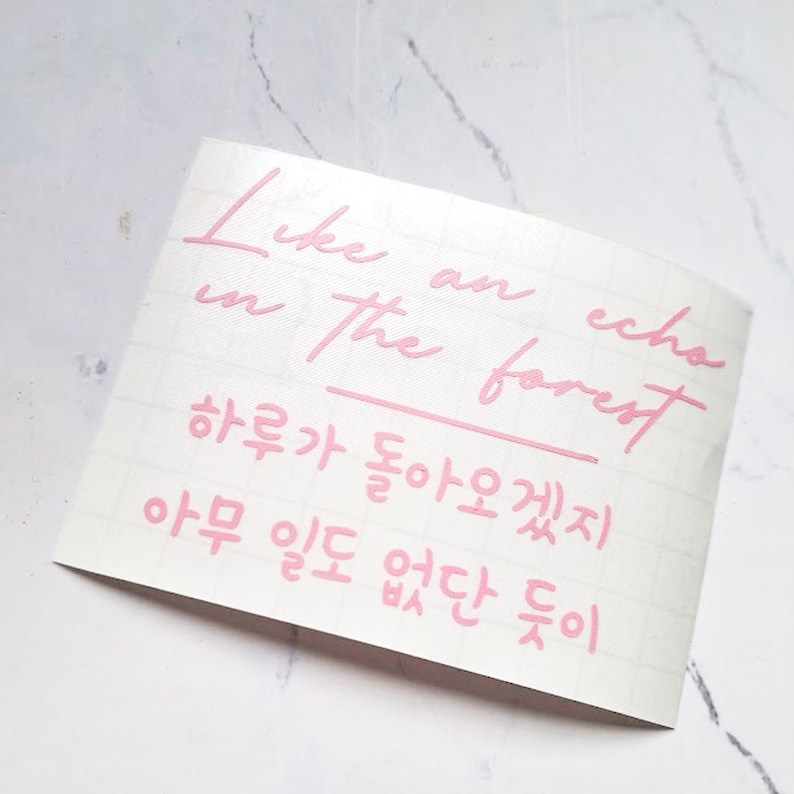 Like an echo
in the forest
하루가 돌아오겠지
아무 일도 없단 듯이